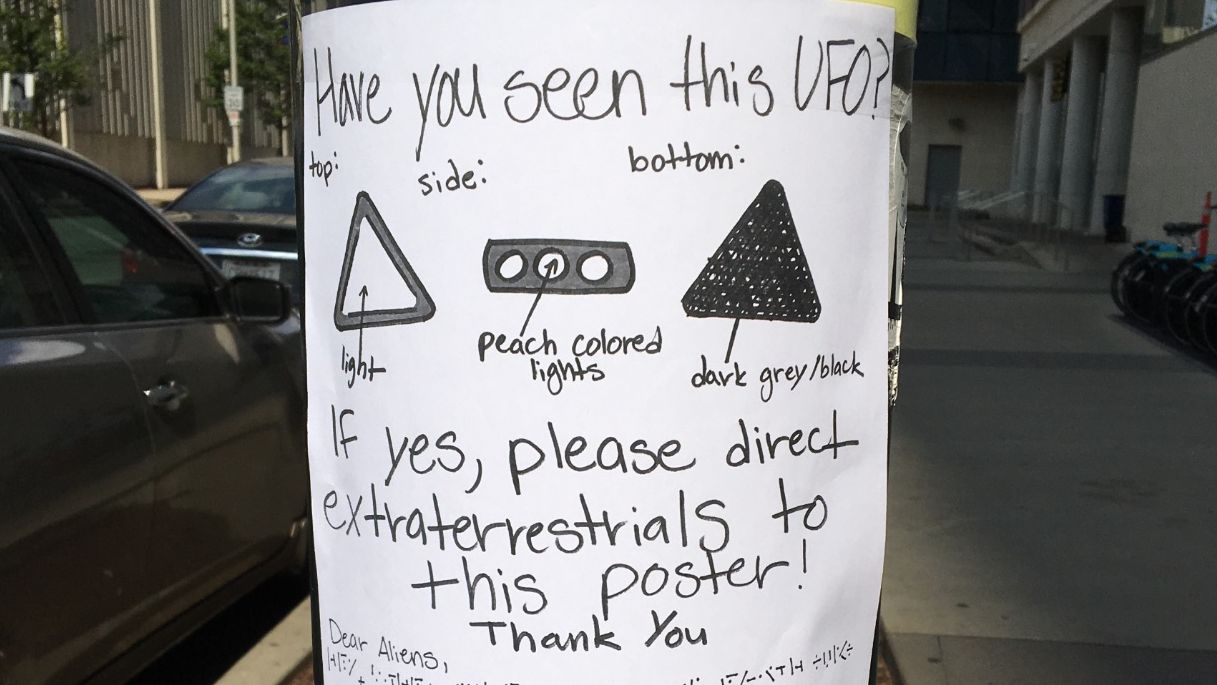 Have you seen this UFO?
top:
side:
bottom:
light
peach colored
lights
dark grey/black
If yes, please direct
extraterrestrials to
this poster!
Thank You
Dear Aliens,